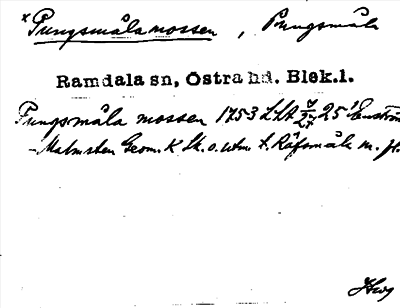 *Pungsmåla mossen, Pungsmåla
Ramdala sn, Östra hd. Blek.l.
Pungsmåla mossen 1753 LSA 25 Enström
-Malmsten Geom. K Sk. o. utm. t. Räfsmåla m. fl.